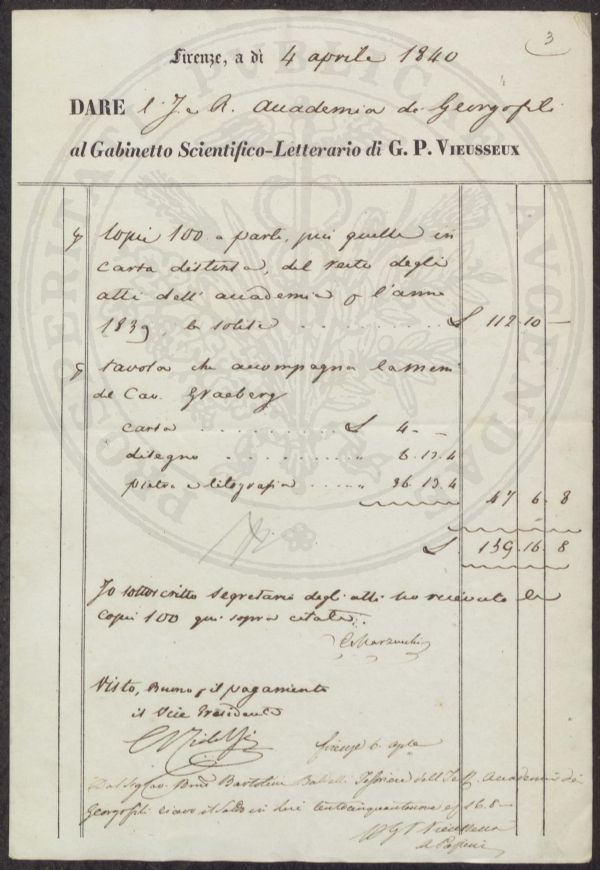 3
Firenze, a dì 4 aprile 1840
DARE l'J. e R. Accademia de Georgofili
al Gabinetto Scientifico-Letterario di G. P. VIEUSSEUX
Copie 100 a parte, più quelle in
carta distinta, del resto degli
atti dell'accademia p l'anno
1839 le solite . . . . . . . . . £ 112.10 —
tavola che accompagna la mem
de Cav. Graeberg
carta . . . . . . . . £ 4. —
disegno . . . . . . . . " 6.13.4
pietra e litografia . . . . . " 36.13.4
47 6. 8
£ 159.16.8
Io sottoscritto segretario degli atti ho ricevuto le
copie 100 qui sopra citate.
Visto, Buono p il pagamento
il Vice Presidente
Firenze 6. aple
Dal Sig Cav. Bartolini Baldelli Tesoriere dell' Accademia dei
Georgofili ricevo il saldo in lire centocinquantanove e 16.8 —
Vieusseux
PROSPERITATI PUBLICAE AUGENDAE